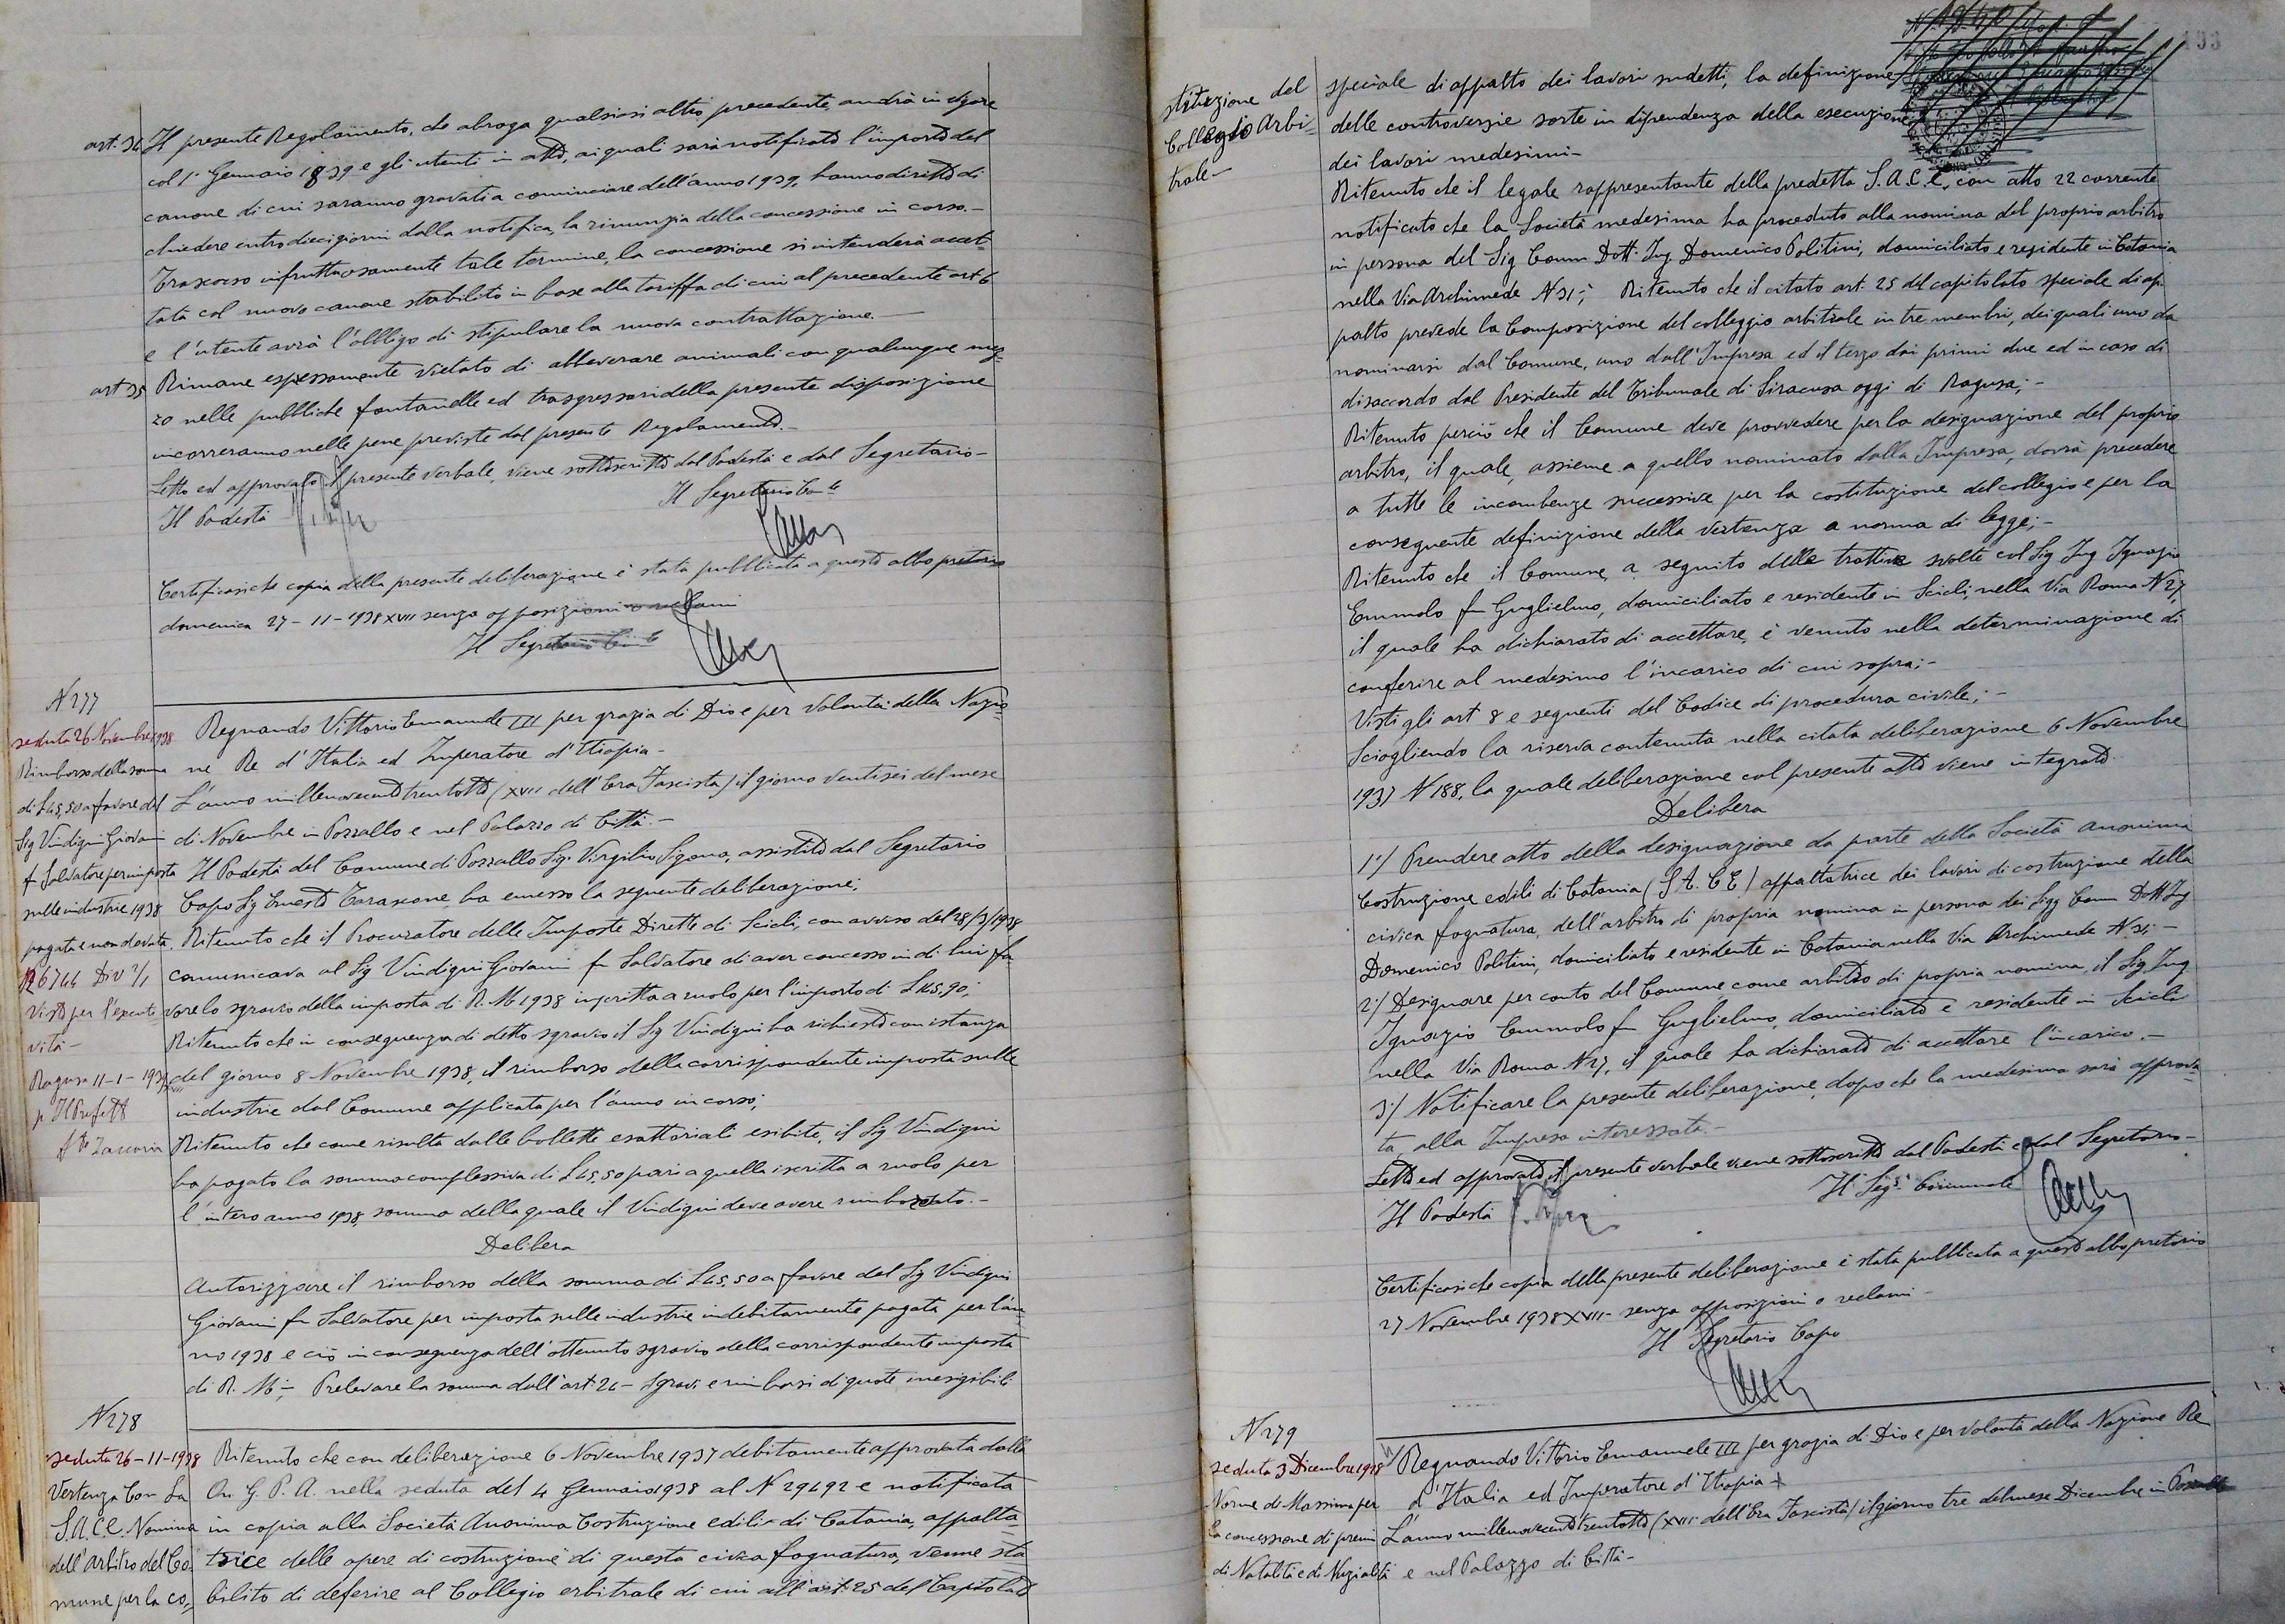 art. 34 Il presente Regolamento, che abroga qualsiasi altro precedente andrà in vigore
col 1° Gennaio 1939 e gli utenti in atto, ai quali sarà notificato l'importo del
canone di cui saranno gravati a cominciare dell'anno 1939, hanno diritto di
chiedere entro dieci giorni dalla notifica, la rinunzia della concessione in corso.-
Trascorso infruttuosamente tale termine, la concessione si intenderà accet-
tata col nuovo canone stabilito in base alla tariffa di cui al precedente art 6
e l'utente avrà l'obbligo di stipulare la nuova contrattazione.-
art 35 Rimane espressamente vietato di abbeverare animali con qualunque mez-
zo nelle pubbliche fontanelle ed trasgressori della presente disposizione
incorreranno nelle pene previste dal presente Regolamento.-
Letto ed approvato il presente verbale, viene sottoscritto dal Podestà e dal Segretario-
Il Podestà Il Segretario Com.le
Certificasi che copia della presente deliberazione è stata pubblicata a questo albo pretorio
domenica 27-11-1938 XVII senza opposizioni o reclami
Il Segretario
N 277
seduta 26 Novembre 1938
Rimborso della somma
di L 45,50 a favore del
Sig Vindigni Giovanni
f Salvatore per imposta
sulle industrie 1938
pagata e non dovuta.
N 26744 Div 2/1
Visto per l'esecuti-
vità-
Ragusa 11-1-1939 XVII
p. Il Prefetto
Regnando Vittorio Emanuele III per grazia di Dio e per volontà della Nazio-
ne Re d'Italia ed Imperatore d'Etiopia-
L'anno millenovecentotrentotto (XVII dell'Era Fascista) il giorno ventisei del mese
di Novembre in Pozzallo e nel Palazzo di Città.-
Il Podestà del Comune di Pozzallo Sig. Virgilio Sigona, assistito dal Segretario
Capo Sig Ernesto Tarascone, ha emesso la seguente deliberazione;
Ritenuto che il Procuratore delle Imposte Dirette di Scicli, con avviso del 28/3/1938
comunicava al Sig Vindigni Giovanni fu Salvatore di aver concesso in di lui fa-
vore lo sgravio della imposta di R. M 1938 inscritta a ruolo per l'importo di
Ritenuto che in conseguenza di detto sgravio il Sig Vindigni ha richiesto con istanza
del giorno 8 Novembre 1938, il rimborso della corrispondente imposta sulle
industrie dal Comune applicata per l'anno in corso;
Ritenuto che come risulta dalle bollette esattoriali esibite, il Sig Vindigni
ha pagato la somma complessiva di L 45,50 pari a quella iscritta a ruolo per
l'intero anno 1938, somma della quale il Vindigni deve avere rimborsato.-
Delibera
Autorizzare il rimborso della somma di L 45,50 a favore del Sig Vindigni
Giovanni fu Salvatore per imposta sulle industrie indebitamente pagata per l'an-
no 1938 e ciò in conseguenza dell'ottenuto sgravio della corrispondente imposta
di R. M;- Prelevare la somma dall'art. 26- Sgravi e rimborsi di quote inesigibili
N 278
seduta 26-11-1938
Vertenza Con La
S.A.C.E. Nomina
dell'Arbitro del Co-
mune per la co-
Ritenuto che con deliberazione 6 Novembre 1937 debitamente approvata dalla
On. G. P. A. nella seduta del 4 Gennaio 1938 al N 29492 e notificata
in copia alla Società Anonima Costruzione edili di Catania, appalta-
trice delle opere di costruzione di questa civica fognatura, venne sta-
bilito di deferire al Collegio arbitrale di cui all'art. 25 del Capitolato
stituzione del
Collegio Arbi-
trale-
speciale di appalto dei lavori sudetti, la definizione
delle controversie sorte in dipendenza della esecuzione
dei lavori medesimi-
Ritenuto che il legale rappresentante della predetta S.A.C.E, con atto 22 corrente
notificato che la Società medesima ha proceduto alla nomina del proprio arbitro
in persona del Sig Comm Dott. Ing. Domenico Politini, domiciliato e residente in Catania
nella Via Archimede N 31;- Ritenuto che il citato art. 25 del capitolato speciale di ap-
palto prevede la Composizione del colleggio arbitrale in tre membri, dei quali uno da
nominarsi dal Comune, uno dall'Impresa ed il terzo dai primi due ed in caso di
disaccordo dal Presidente del Tribunale di Siracusa oggi di Ragusa;-
Ritenuto perciò che il Comune deve provvedere per la designazione del proprio
arbitro, il quale, assieme a quello nominato dalla Impresa, dovrà precedere
a tutte le incombenze successive per la costituzione del collegio e per la
conseguente definizione della vertenza a norma di legge;-
Ritenuto che il Comune, a seguito delle trattive svolte col Sig Ing Ignazio
Emmolo fu Guglielmo, domiciliato e residente in Scicli, nella Via Roma N 27,
il quale ha dichiarato di accettare, è venuto nella determinazione di
conferire al medesimo l'incarico di cui sopra;-
Visti gli art 8 e seguenti del Codice di procedura civile;-
Sciogliendo la riserva contenuta nella citata deliberazione 6 Novembre
1937 N 188, la quale deliberazione col presente atto viene integrato.
Delibera
1°/ Prendere atto della designazione da parte della Società anonima
Costruzione edili di Catania (S A. C E) appaltatrice dei lavori di costruzione della
civica fognatura, dell'arbitro di propria nomina in persona dei Sigg Comm Dott Ing
Domenico Politini, domiciliato e residente in Catania nella Via Archimede N 31;-
2°/ Designare per conto del Comune, come arbitro di propria nomina, il Sig Ing
Ignazio Emmolo fu Guglielmo, domiciliato e residente in Scicli
nella Via Roma N 27, il quale ha dichiarato di accettare l'incarico.-
3°/ Notificare la presente deliberazione, dopo che la medesima sarà approva-
ta, alla Impresa interessata.-
Letto ed approvato il presente verbale viene sottoscritto dal Podestà e dal Segretario-
Il Podestà Il Seg. Comunale
Certificasi che copia della presente deliberazione è stata pubblicata a questo albo pretorio
27 Novembre 1938 XVII- senza opposizioni o reclami-
Il Segretario Capo
N 279
seduta 3 Dicembre 1938
Norme di Massima per
la concessione di premi
di Natalità e di Nuzialità
Regnando Vittorio Emanuele III per grazia di Dio e per volontà della Nazione Re
d'Italia ed Imperatore d'Etiopia
L'anno millenovecentotrentotto (XVII dell'Era Fascista) il giorno tre del mese Dicembre in Pozzallo
e nel Palazzo di Città-